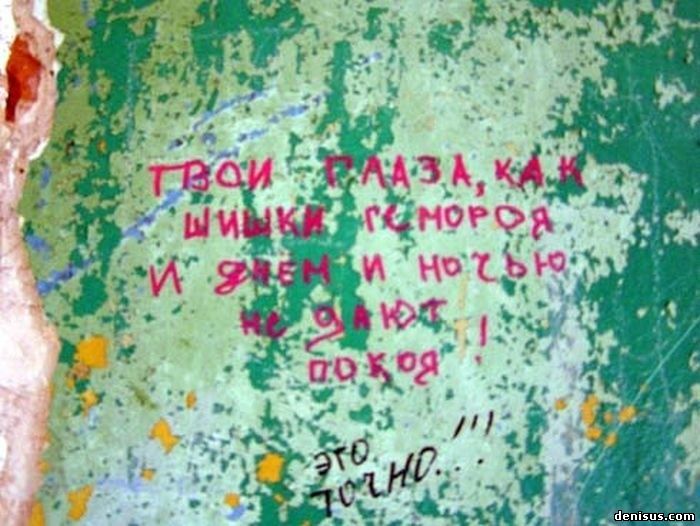 ТВОИ ГЛАЗА, КАК
ШИШКИ ГЕМОРОЯ
И ДНЕМ И НОЧЬЮ
НЕ ДАЮТ
ПОКОЯ!
ЭТО
ТОЧНО...!!!
denisus.com